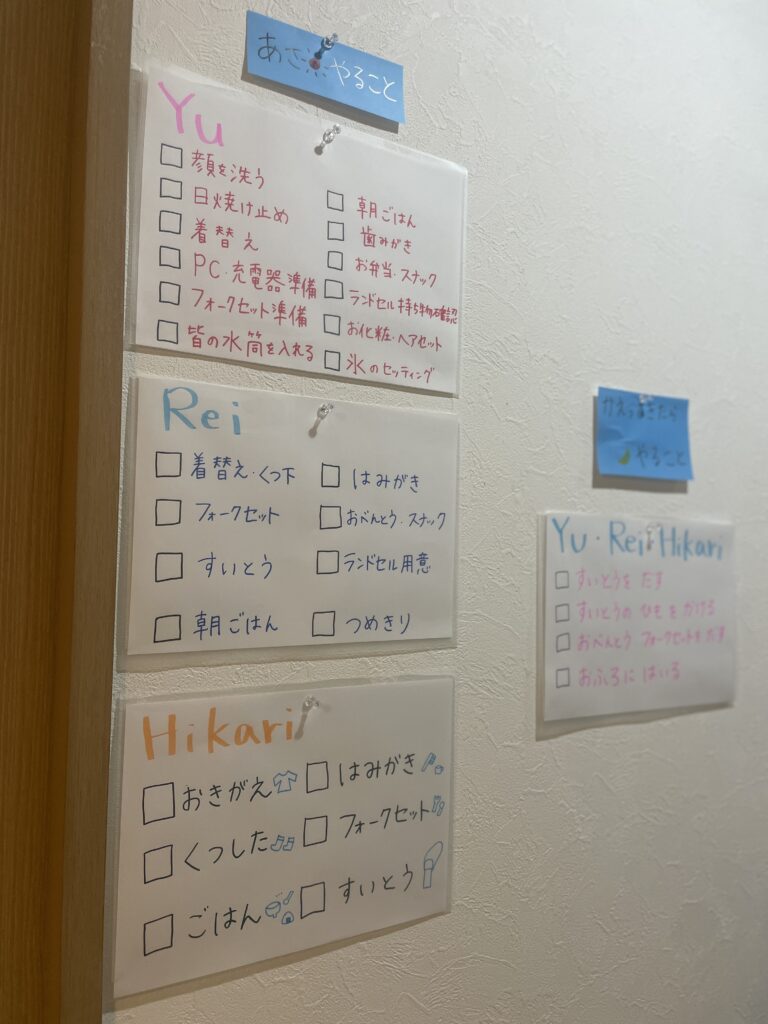 あさ やること
Yu
顔を洗う
日焼け止め
着替え
PC・充電器準備
フォークセット準備
皆の水筒を入れる
朝ごはん
歯みがき
お弁当・スナック
ランドセル持ち物確認
お化粧・ヘアセット
氷のセッティング
Rei
着替え・くつ下
フォークセット
すいとう
朝ごはん
はみがき
おべんとう・スナック
ランドセル用意
つめきり
Hikari
おきがえ
くつした
ごはん
はみがき
フォークセット
すいとう
かえってきたら
やること
Yu・Rei Hikari
すいとうを だす
すいとうの ひもを かける
おべんとう フォークセットを だす
おふろに はいる